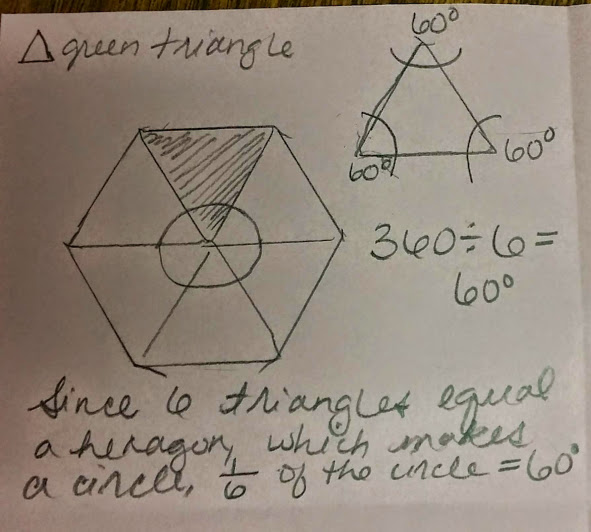 △ green triangle
60°
60°
60°
360÷6=
60°
Since 6 triangles equal
a hexagon, which makes
a circle, 1/6 of the circle = 60°